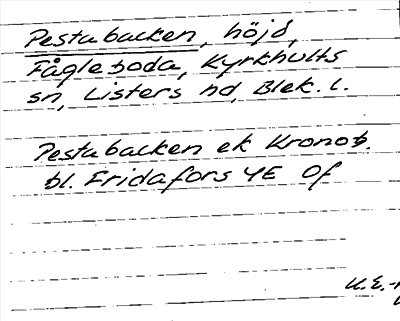 Pestabacken, höjd,
Fågleboda, Kyrkhults
sn, Listers hd, Blek. l.
Pestabacken ek Kronob.
bl. Fridafors 4E Of
K.E.